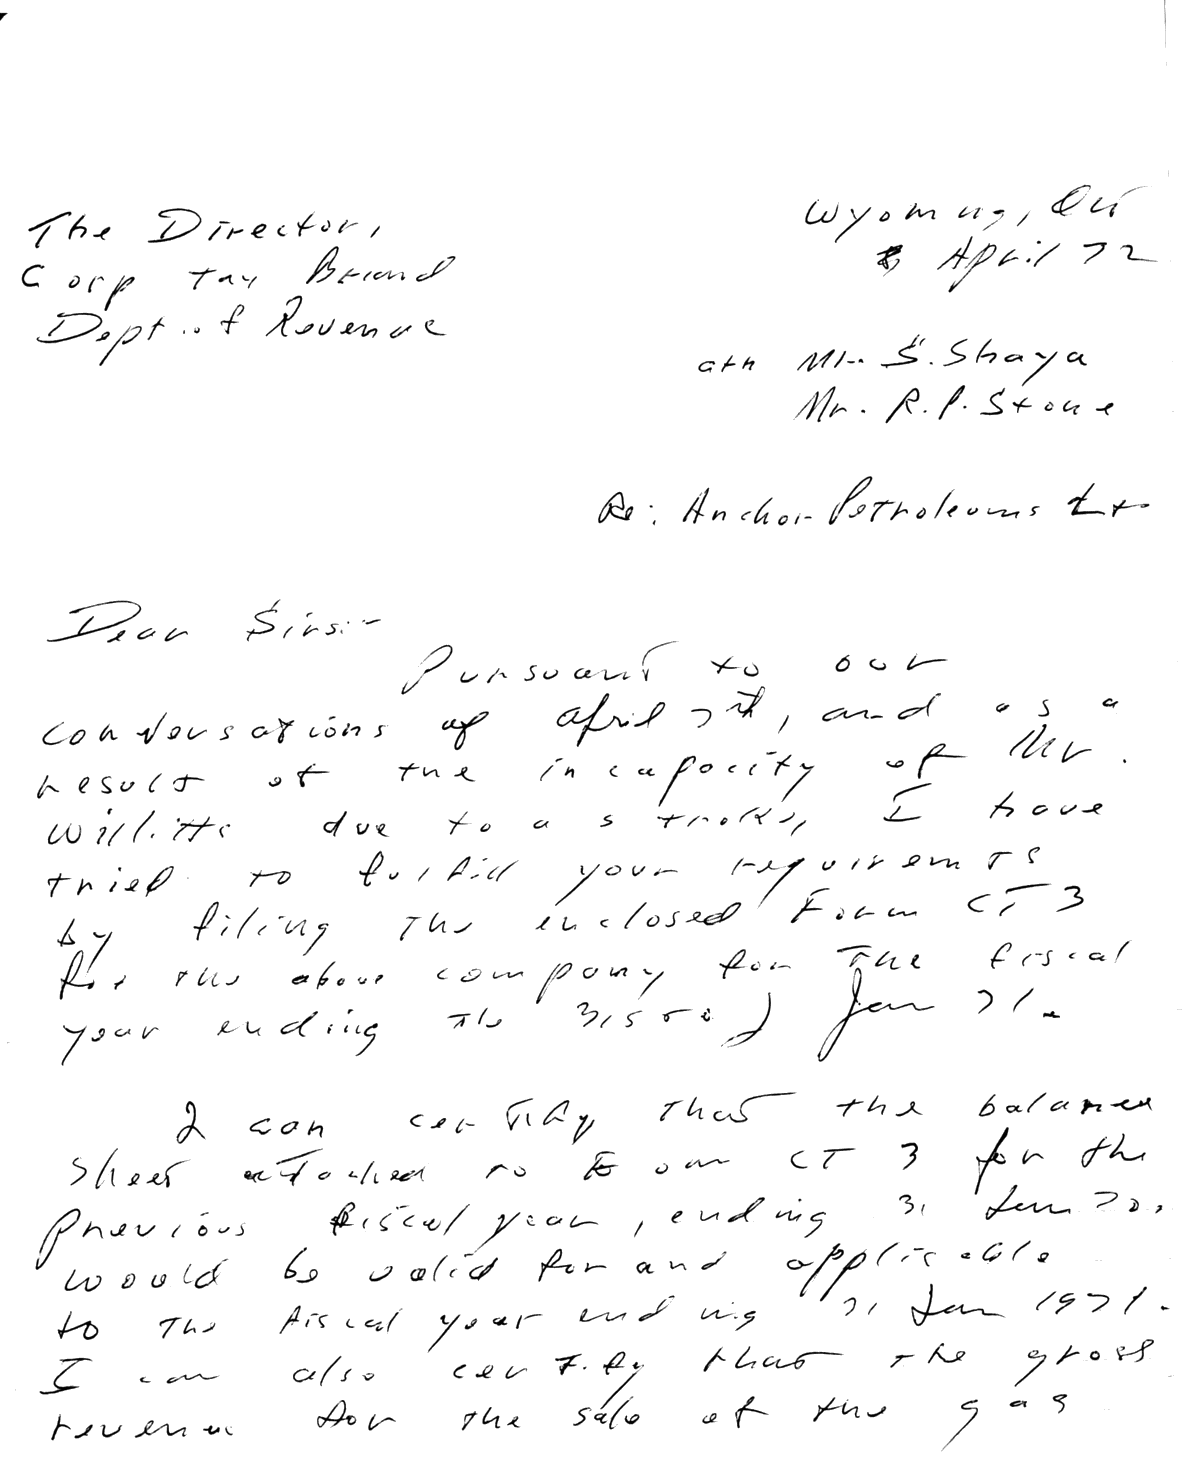 Wyoming, Ont
8 April 72
The Director,
Corp Tax Brand
Dept. of Revenue
attn Mr. S. Shaya
Mr. R. P. Stone
Re: Anchor Petroleums Lt
Dear Sirs:-
Pursuant to our
conversations of April 7th, and as a
result of the incapacity of Mr.
Willitts due to a stroke, I have
tried to fulfill your requirements
by filing the enclosed Form CT 3
for the above company for the fiscal
year ending the 31st of Jan 71.
I can certify that the balance
sheet attached to Form CT 3 for the
previous fiscal year, ending 31 Jan 70,
would be valid for and applicable
to the fiscal year ending 31 Jan 1971.
I can also certify that the gross
revenue for the sale of the gas